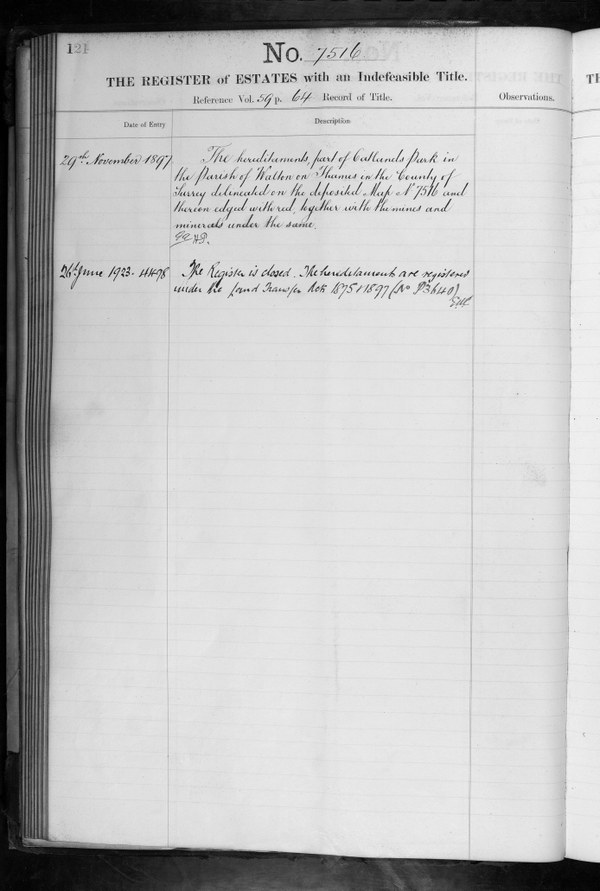 121
No. 7516
THE REGISTER of ESTATES with an Indefeasible Title.
Reference Vol. 59 p. 64 Record of Title.
Observations.
Date of Entry
Description
29th November 1897
The hereditaments, part of Oatlands Park in
the Parish of Walton on Thames in the County of
Surrey delineated on the deposited Map No 7516 and
thereon edged with red, together with the mines and
minerals under the same.
26th June 1923. 4498
The Register is closed. The hereditaments are registered
under the Land Transfer Acts 1875 & 1897 (No P3640)